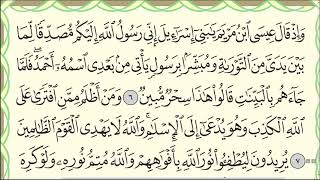 وَإِذْ قَالَ عِيسَى ابْنُ مَرْيَمَ يَٰبَنِىٓ إِسْرَٰٓءِيلَ إِنِّى رَسُولُ ٱللَّهِ إِلَيْكُم مُّصَدِّقًا لِّمَا
بَيْنَ يَدَىَّ مِنَ ٱلتَّوْرَىٰةِ وَمُبَشِّرًۢا بِرَسُولٍ يَأْتِى مِنۢ بَعْدِى ٱسْمُهُۥٓ أَحْمَدُ ۖ فَلَمَّا
جَآءَهُم بِٱلْبَيِّنَٰتِ قَالُوا۟ هَٰذَا سِحْرٌ مُّبِينٌ ٦ وَمَنْ أَظْلَمُ مِمَّنِ ٱفْتَرَىٰ عَلَى
ٱللَّهِ ٱلْكَذِبَ وَهُوَ يُدْعَىٰٓ إِلَى ٱلْإِسْلَٰمِ ۚ وَٱللَّهُ لَا يَهْدِى ٱلْقَوْمَ ٱلظَّٰلِمِينَ
٧ يُرِيدُونَ لِيُطْفِـُٔوا۟ نُورَ ٱللَّهِ بِأَفْوَٰهِهِمْ وَٱللَّهُ مُتِمُّ نُورِهِۦ وَلَوْ كَرِهَ